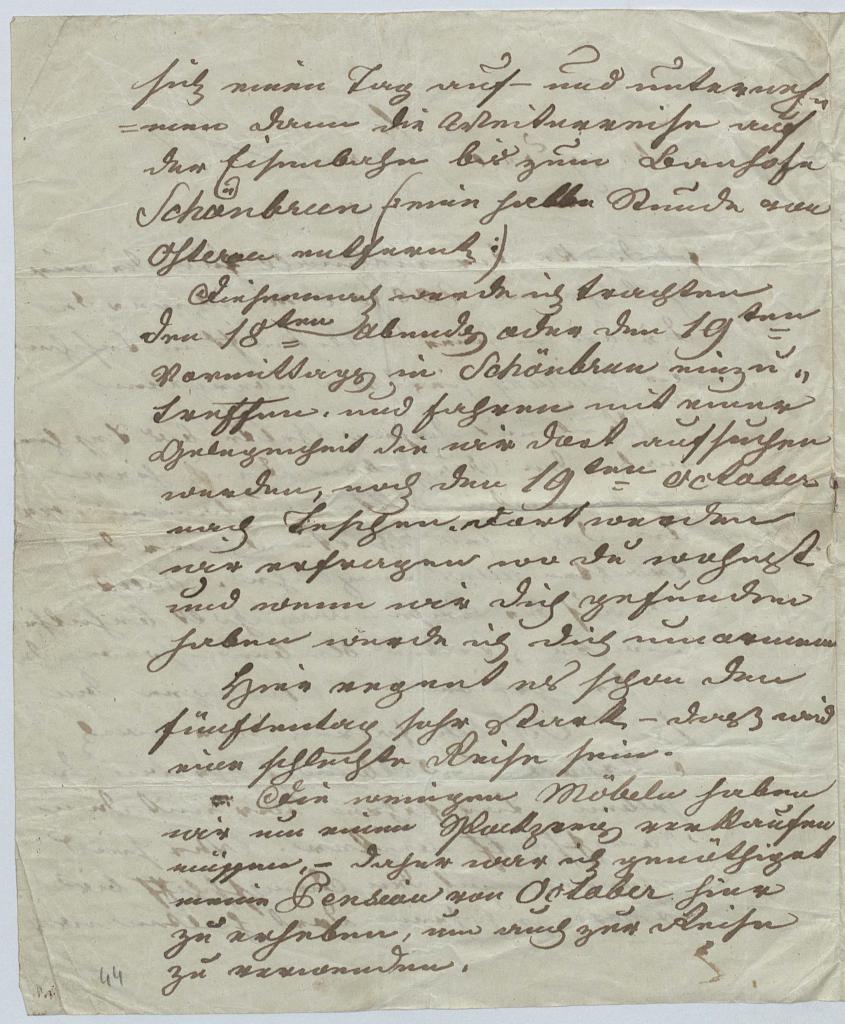 sich einen Tag auf – und unterneh„
=men dann die Weiterreise auf
der Eisenbahn bis zum Banhofe
Schönbrun (: eine halbe Stunde von
entfernt :)
Diesemnach werde ich trachten
den 18ten Abends oder den 19ten
Vormittags in Schönbrun einzu„
treffen. und fahren mit einer
Gelegenheit die wir dort aufsuchen
werden, noch den 19ten October
nach Teschen. dort werden
wir erfragen wo du wohnst
und wenn wir dich gefunden
haben werde ich dich umarmen
Hier regent es schon den
fünftentag sehr stark – daß wird
eine schlechte Reise sein.
Die wenigen Möbeln haben
wir um einen verkaufen
müssen, – daher war ich genöthiget
meine Pension von October hier
zu erheben, um auch zur Reise
zu verwenden.
44